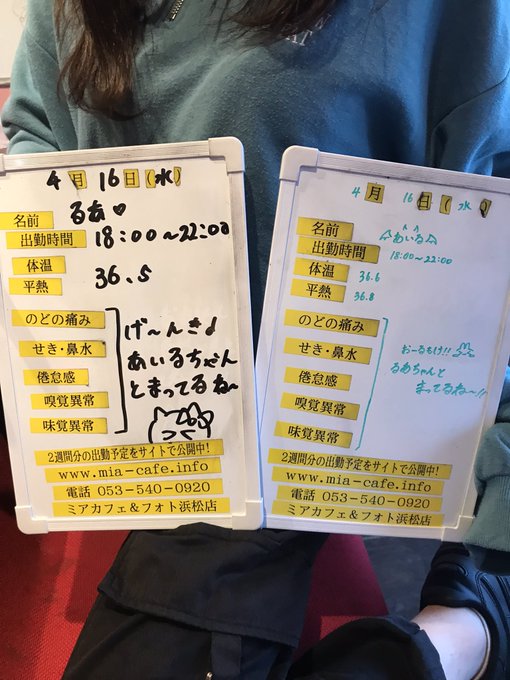 AT
4月 16日(水)
名前 るあ♡
出勤時間 18:00~22:00
体温
平熱 36.5
のどの痛み
せき・鼻水
倦怠感
嗅覚異常
味覚異常
げ~んき♪
あいるちゃんと
まってるね~
2週間分の出勤予定をサイトで公開中!
www.mia-cafe.info
電話 053-540-0920
ミアカフェ&フォト浜松店
4月 16日(水)
名前 あいる
出勤時間 18:00~22:00
体温 36.6
平熱 36.8
のどの痛み
せき・鼻水
倦怠感
嗅覚異常
味覚異常
おーるもけ!!
るあちゃんと
まってるね~!!
2週間分の出勤予定をサイトで公開中!
www.mia-cafe.info
電話 053-540-0920
ミアカフェ&フォト浜松店